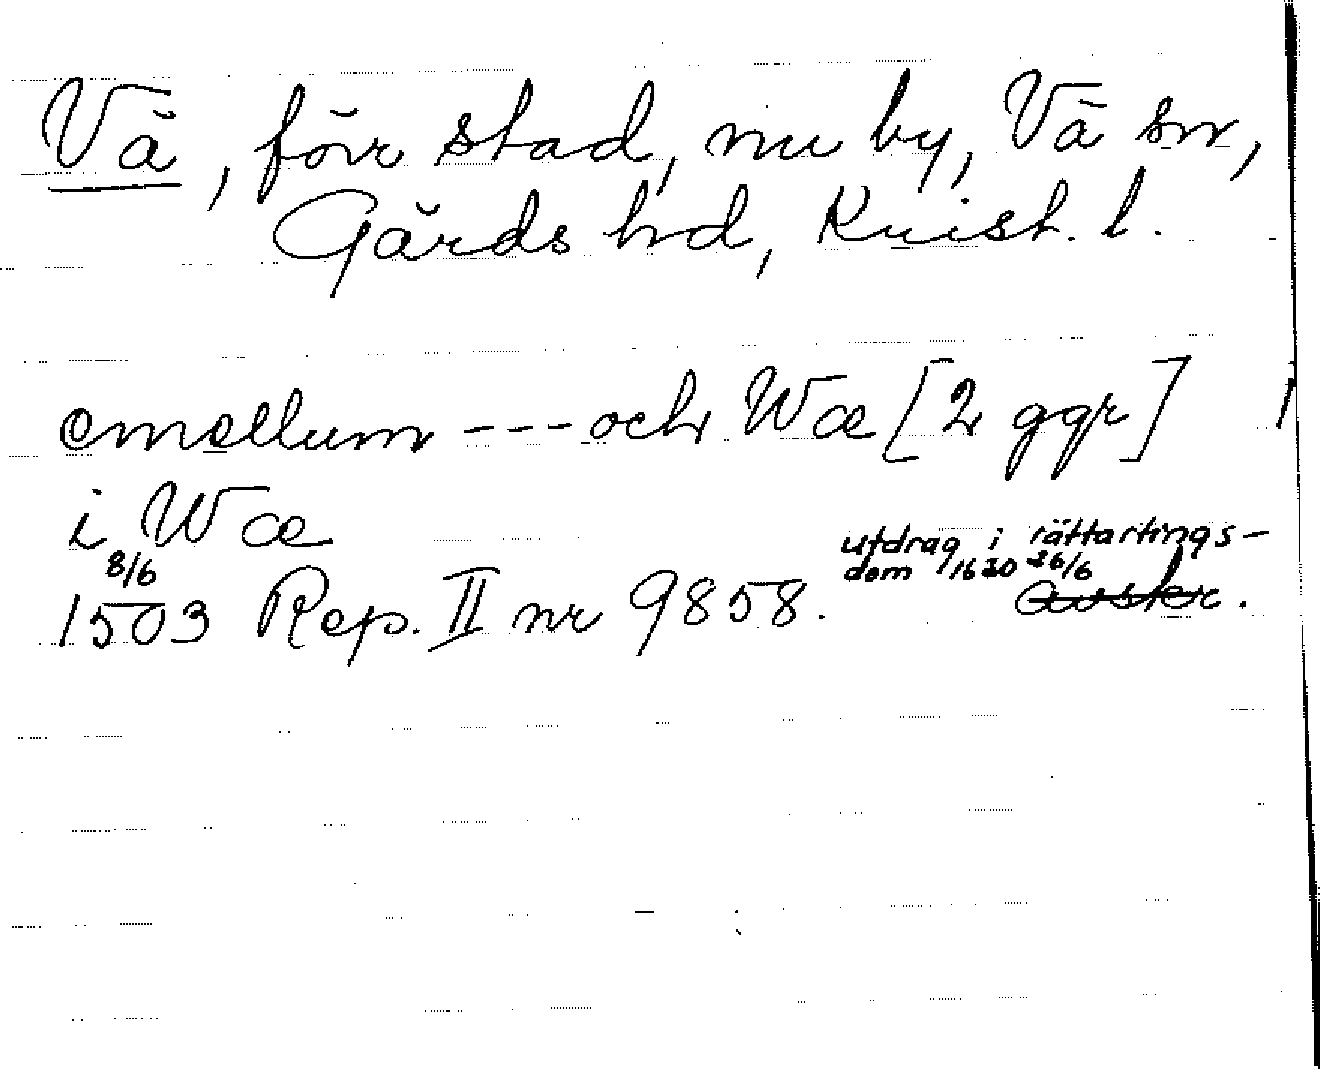 Vä, förr stad, nu by, Vä sn,
Gärds hd, Krist. l.
emellum --- och Wæ [2 ggr]
i Wæ
8/6
1503 Rep. II nr 9858.
utdrag i rättartings-
dom 1620 26/6
avskr.